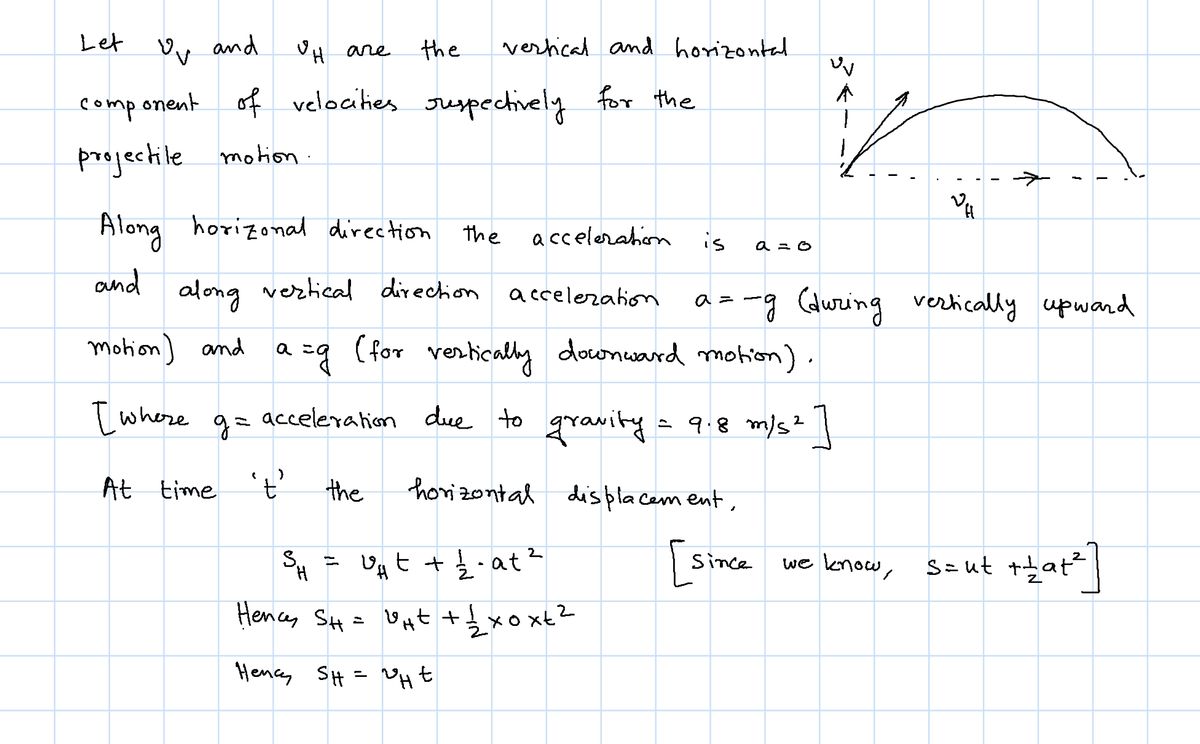 Let v_V and v_H are the vertical and horizontal
component of velocities respectively for the
projectile motion.
v_V
v_H
Along horizonal direction the acceleration is a = 0
and along vertical direction acceleration a = -g (during vertically upward
motion) and a = g (for vertically downward motion).
[where g = acceleration due to gravity = 9.8 m/s²]
At time 't' the horizontal displacement,
S_H = v_H t + 1/2 · at² [Since we know, s = ut + 1/2 at²]
Hence, S_H = v_H t + 1/2 × 0 × t²
Hence, S_H = v_H t